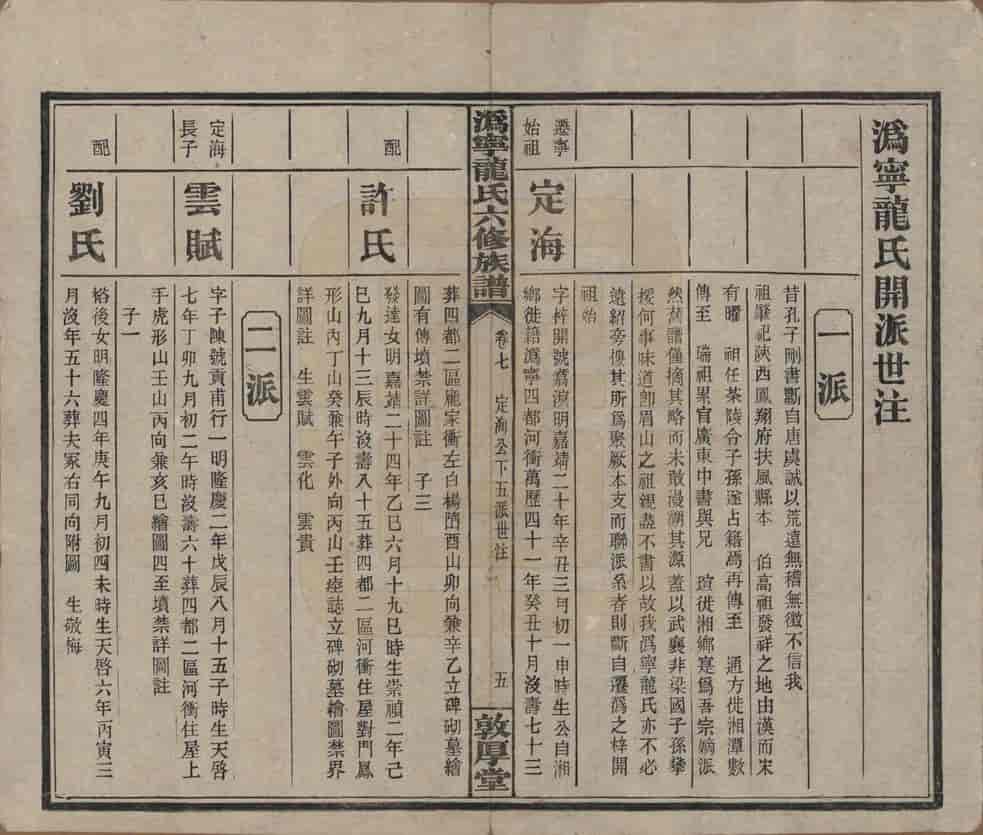 溈寧龍氏開派世注
一派
昔孔子刪書斷自唐虞誠以荒遠無稽無徵不信我
祖肇祀陝西鳳翔府扶風縣本 伯高祖發祥之地由漢而宋
有曜 祖任茶陵合子孫遂占籍焉再傳至 通方徙湘潭數
傳至 瑞祖累官廣東中書與兄 瑄徙湘鄉寔爲吾宗嫡派
然舊譜僅摘其略而未敢漫溯其源蓋以武襄非梁國子孫攀
援何事味道卽眉山之祖親盡不書以故我溈寧龍氏亦不必
遠紹旁搜其所爲聚厥本支而聯派系者則斷自遷溈之梓開
祖始
遷寧始祖
定海
字梓開號嘉源明嘉靖二十年辛丑三月初一申時生公自湘
鄉徙籍溈寧四都河衝萬歷四十一年癸丑十月沒壽七十三
溈寧龍氏六修族譜
卷七
定海公下五派世注
五
敦厚堂
葬四都二區龐家衝左白楊隋酉山卯向兼辛乙立碑砌墓繪
圖有傳墳禁詳圖註 子三
配
許氏
發達女明嘉靖二十四年乙巳六月十九巳時生崇禎二年己
巳九月十三辰時沒壽八十五葬四都二區河衝住屋對門鳳
形山內丁山癸兼午子外向丙山壬座誌立碑砌墓繪圖禁界
詳圖註 生雲賦 雲化 雲貴
二派
定海長子
雲賦
字子陳號貢甫行一明隆慶二年戊辰八月十五子時生天啓
七年丁卯九月初二午時沒壽六十葬四都二區河衝住屋上
手虎形山壬山丙向兼亥巳繪圖四至墳禁詳圖註
子一
配
劉氏
裕後女明隆慶四年庚午九月初四未時生天啓六年丙寅三
月沒年五十六葬夫冢右同向附圖 生敬悔